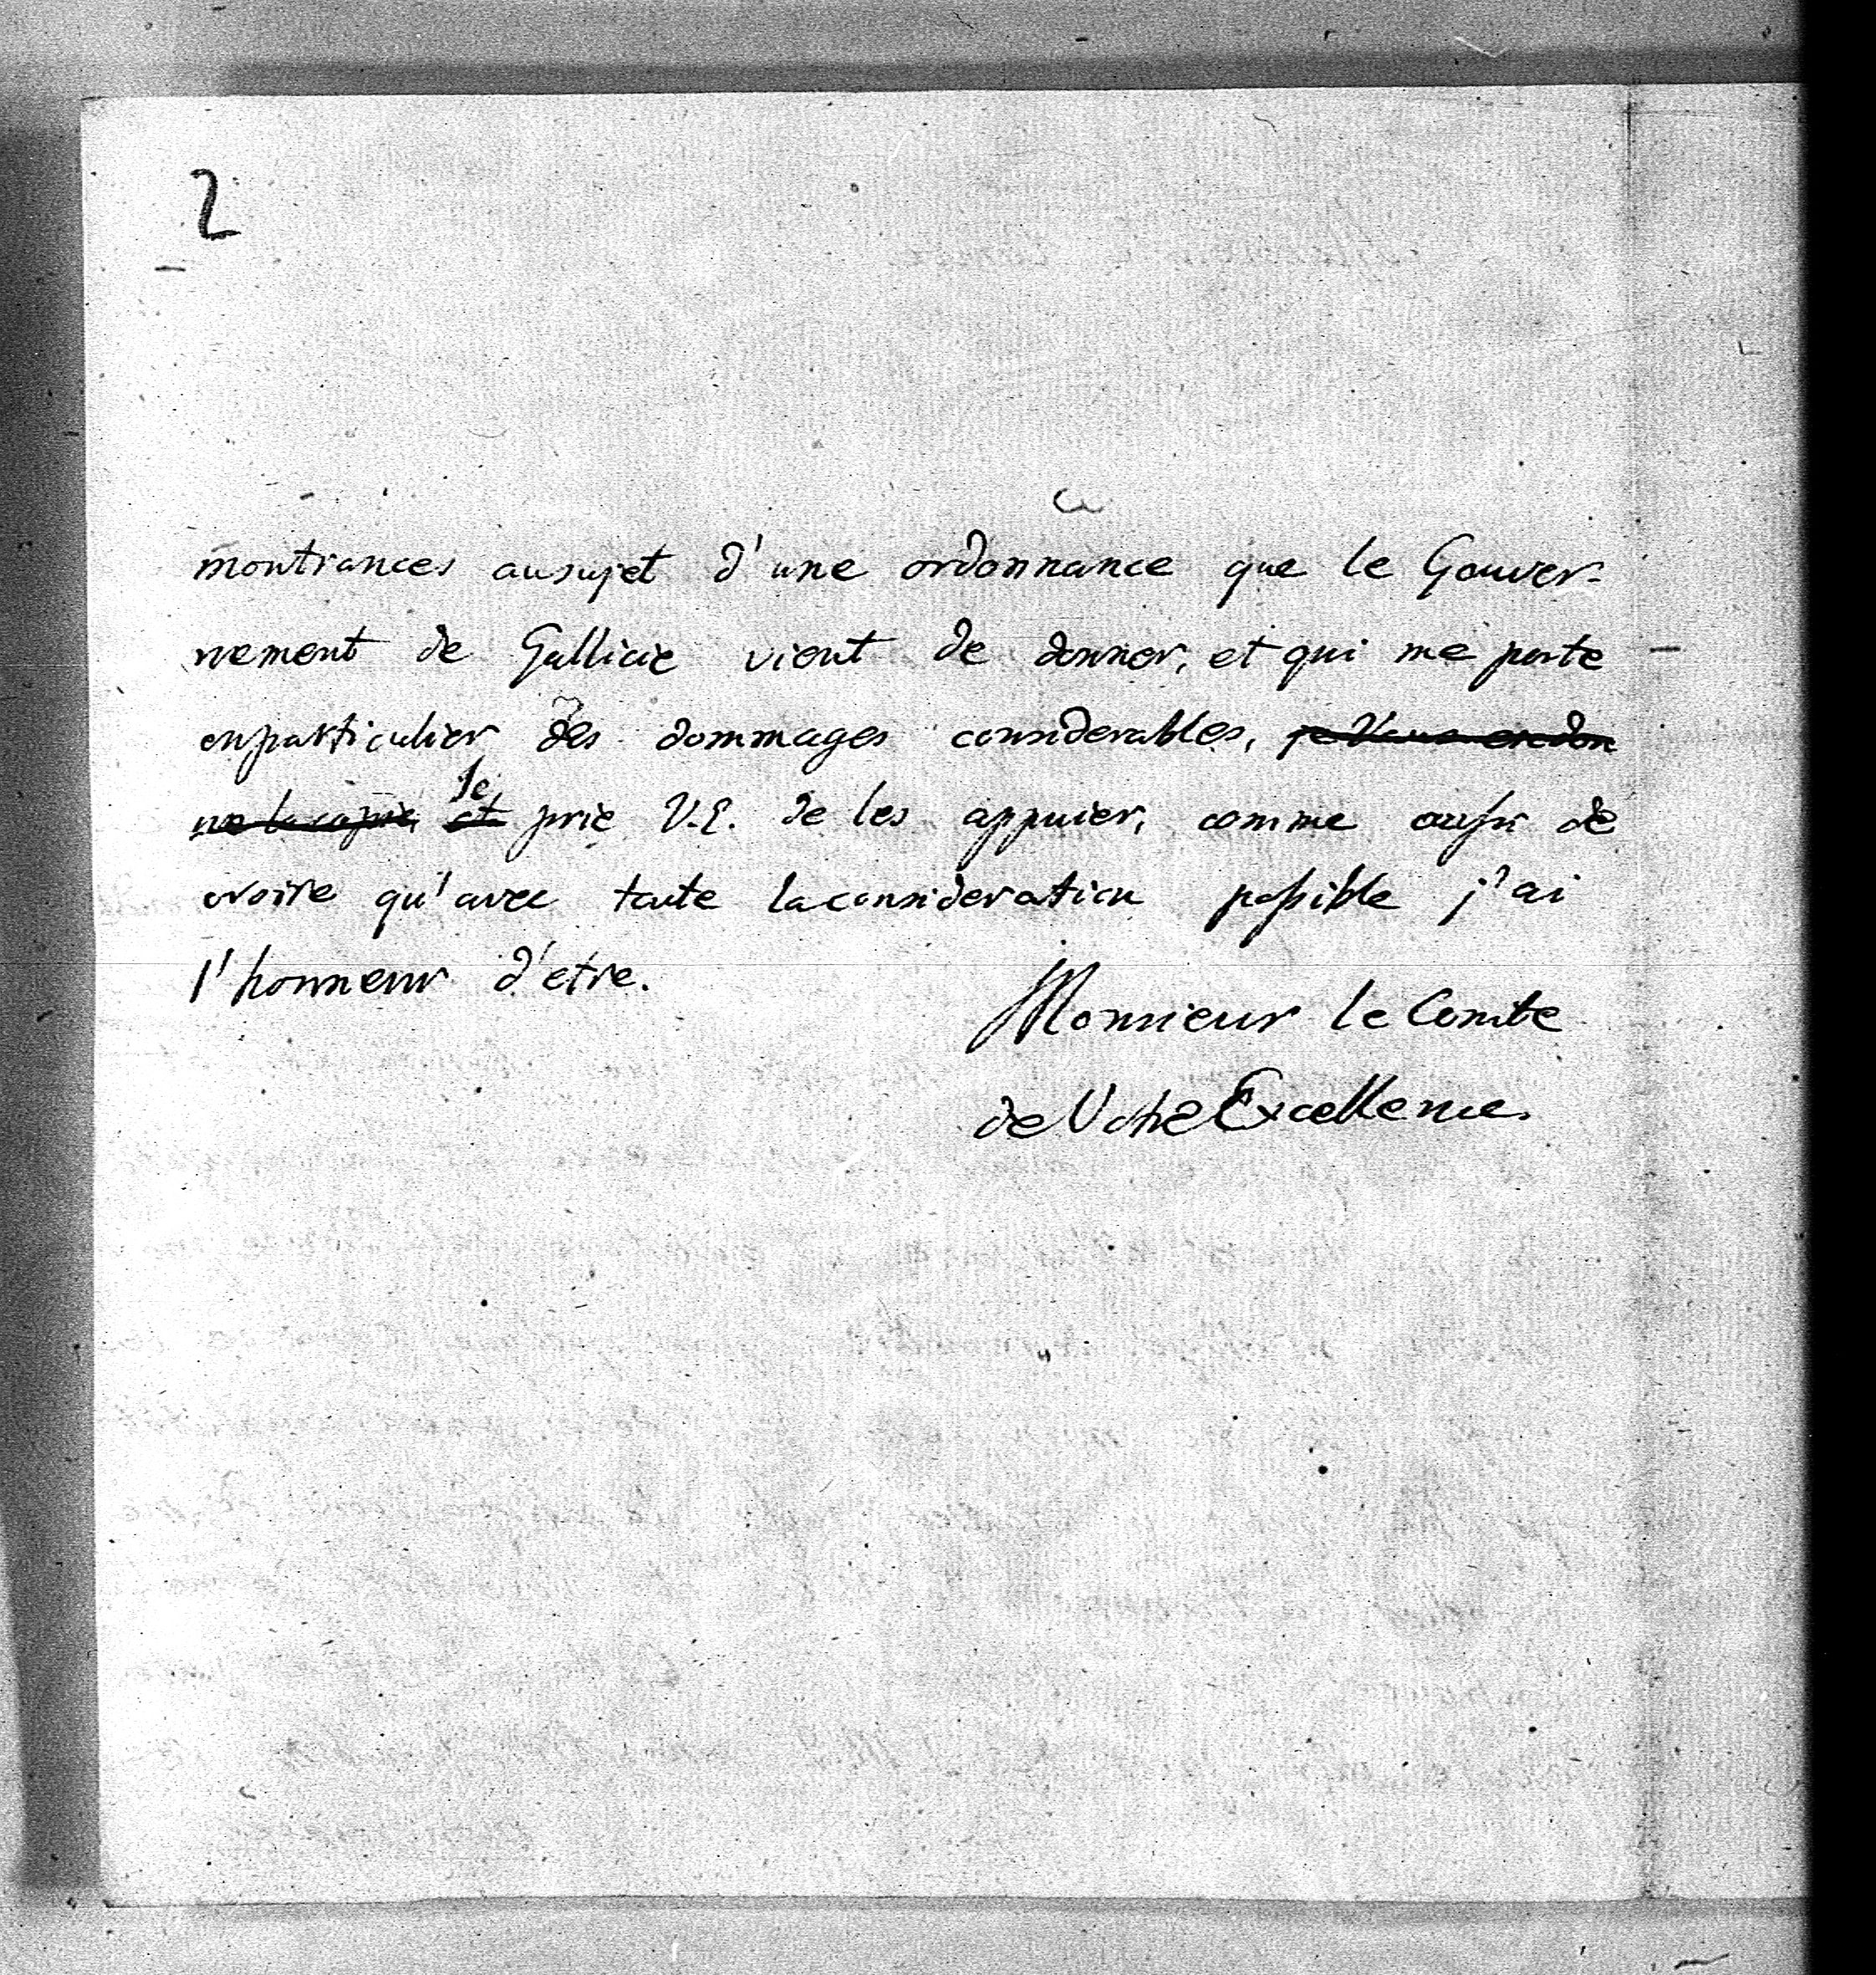 2
montrances ausujet d'une ordonnance que le Gouver-
nement de Gallicie vient de donner, et qui me porte
enparticulier des dommages considerables, je Vous en don
ne la copie, et Je prie V.E. de les appuier, comme aussi de
croire qu'avec toute laconsideration possible j'ai
l'honneur d'etre.
Monsieur le Comte
de Votre Excellence.